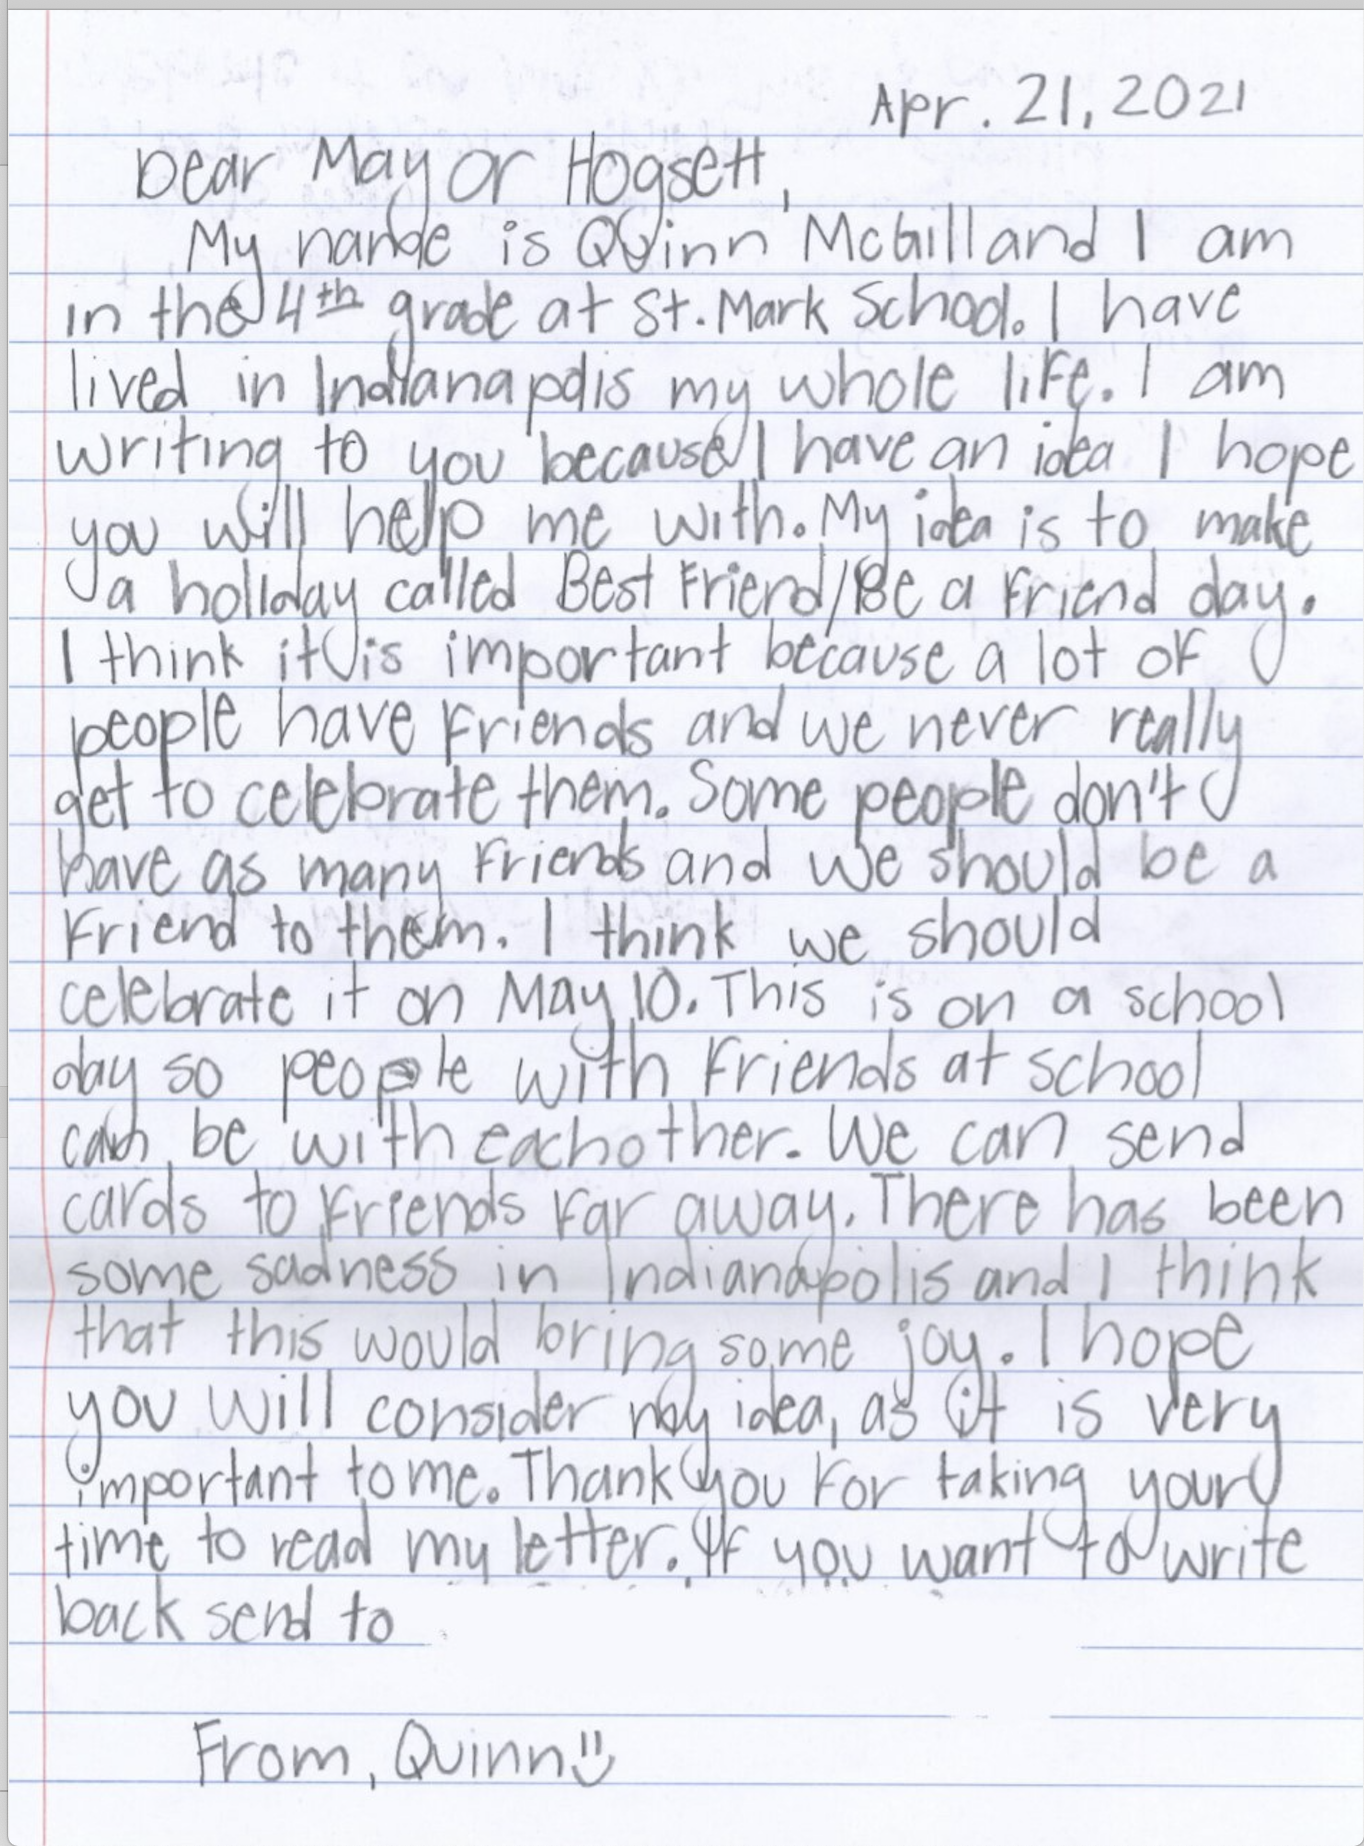 Apr. 21, 2021
Dear Mayor Hogsett,
My name is Quinn McGill and I am
in the 4th grade at St. Mark School. I have
lived in Indianapolis my whole life. I am
writing to you because I have an idea I hope
you will help me with. My idea is to make
a holiday called Best Friend/Be a Friend day.
I think it is important because a lot of
people have friends and we never really
get to celebrate them. Some people don't
have as many friends and we should be a
friend to them. I think we should
celebrate it on May 10. This is on a school
day so people with friends at school
can be with eachother. We can send
cards to friends far away. There has been
some sadness in Indianapolis and I think
that this would bring some joy. I hope
you will consider my idea, as it is very
important to me. Thank you for taking your
time to read my letter. If you want to write
back send to
From, Quinn